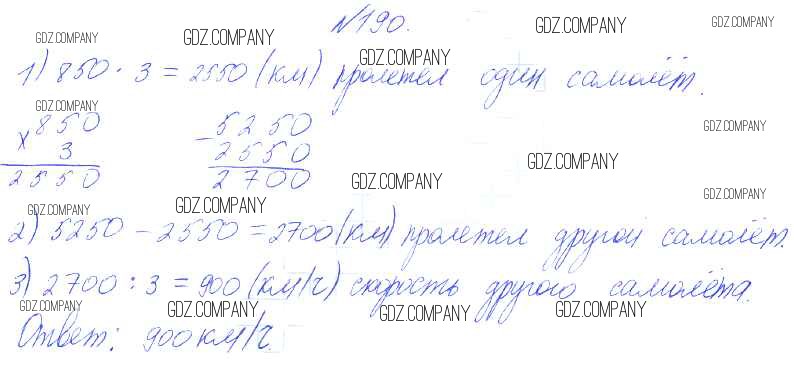 №190.
GDZ.COMPANY GDZ.COMPANY GDZ.COMPANY GDZ.COMPANY
GDZ.COMPANY
1) 850 · 3 = 2550 (км) пролетел один самолёт.
GDZ.COMPANY
× 850 − 5250
3 2550
2550 2700
GDZ.COMPANY
GDZ.COMPANY
GDZ.COMPANY
GDZ.COMPANY
GDZ.COMPANY GDZ.COMPANY
2) 5250 − 2550 = 2700 (км) пролетел другой самолёт.
3) 2700 : 3 = 900 (км/ч) скорость другого самолёта.
GDZ.COMPANY GDZ.COMPANY GDZ.COMPANY GDZ.COMPANY
Ответ: 900 км/ч.